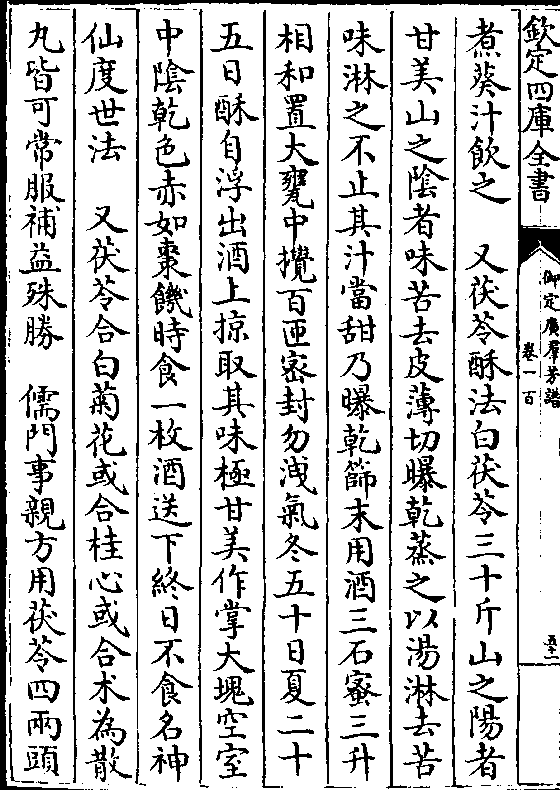 欽定四庫全書
御定廣羣芳譜
卷一百
煮葵汁飲之　又茯苓酥法白茯苓三十斤山之陽者
甘美山之陰者味苦去皮薄切曝乾蒸之以湯淋去苦
味淋之不止其汁當甜乃曝乾篩末用酒三石蜜三升
相和置大甕中攪百匝密封勿洩氣冬五十日夏二十
五日酥自浮出酒上掠取其味極甘美作掌大塊空室
中陰乾色赤如棗饑時食一枚酒送下終日不食名神
仙度世法　又茯苓合白菊花或合桂心或合术為散
丸皆可常服補益殊勝　儒門事親方用茯苓四兩頭